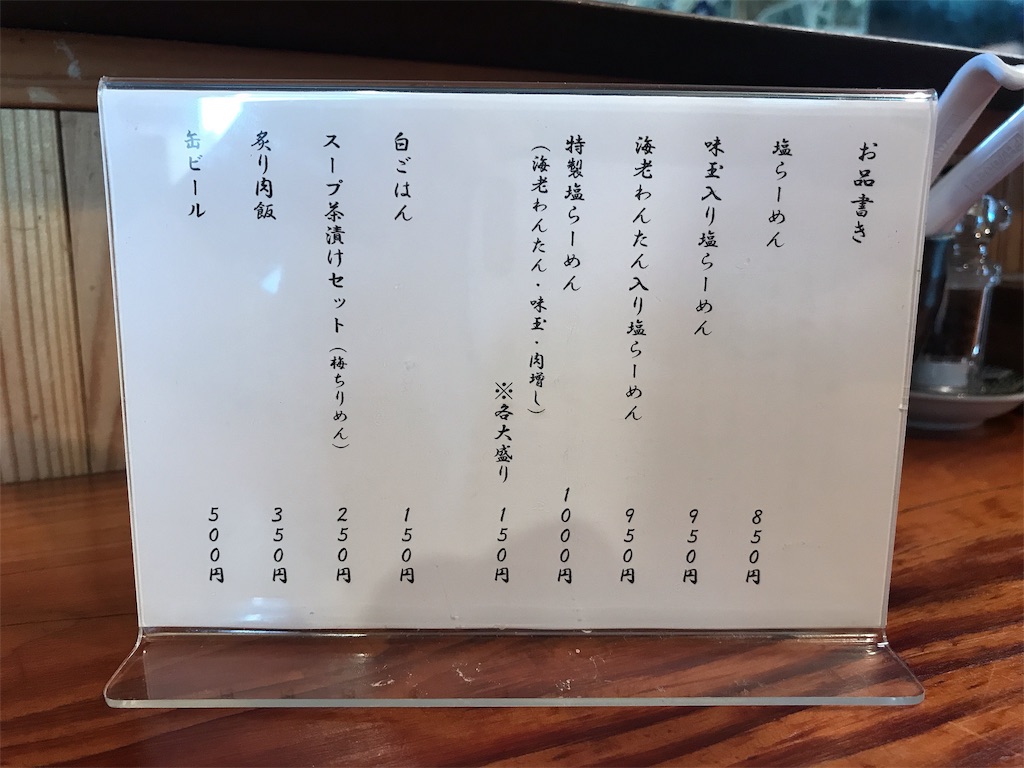 お品書き
塩らーめん 850円
味玉入り塩らーめん 950円
海老わんたん入り塩らーめん 950円
特製塩らーめん 1000円
（海老わんたん・味玉・肉増し）
※各大盛り 150円
白ごはん 150円
スープ茶漬けセット（梅ちりめん） 250円
炙り肉飯 350円
缶ビール 500円